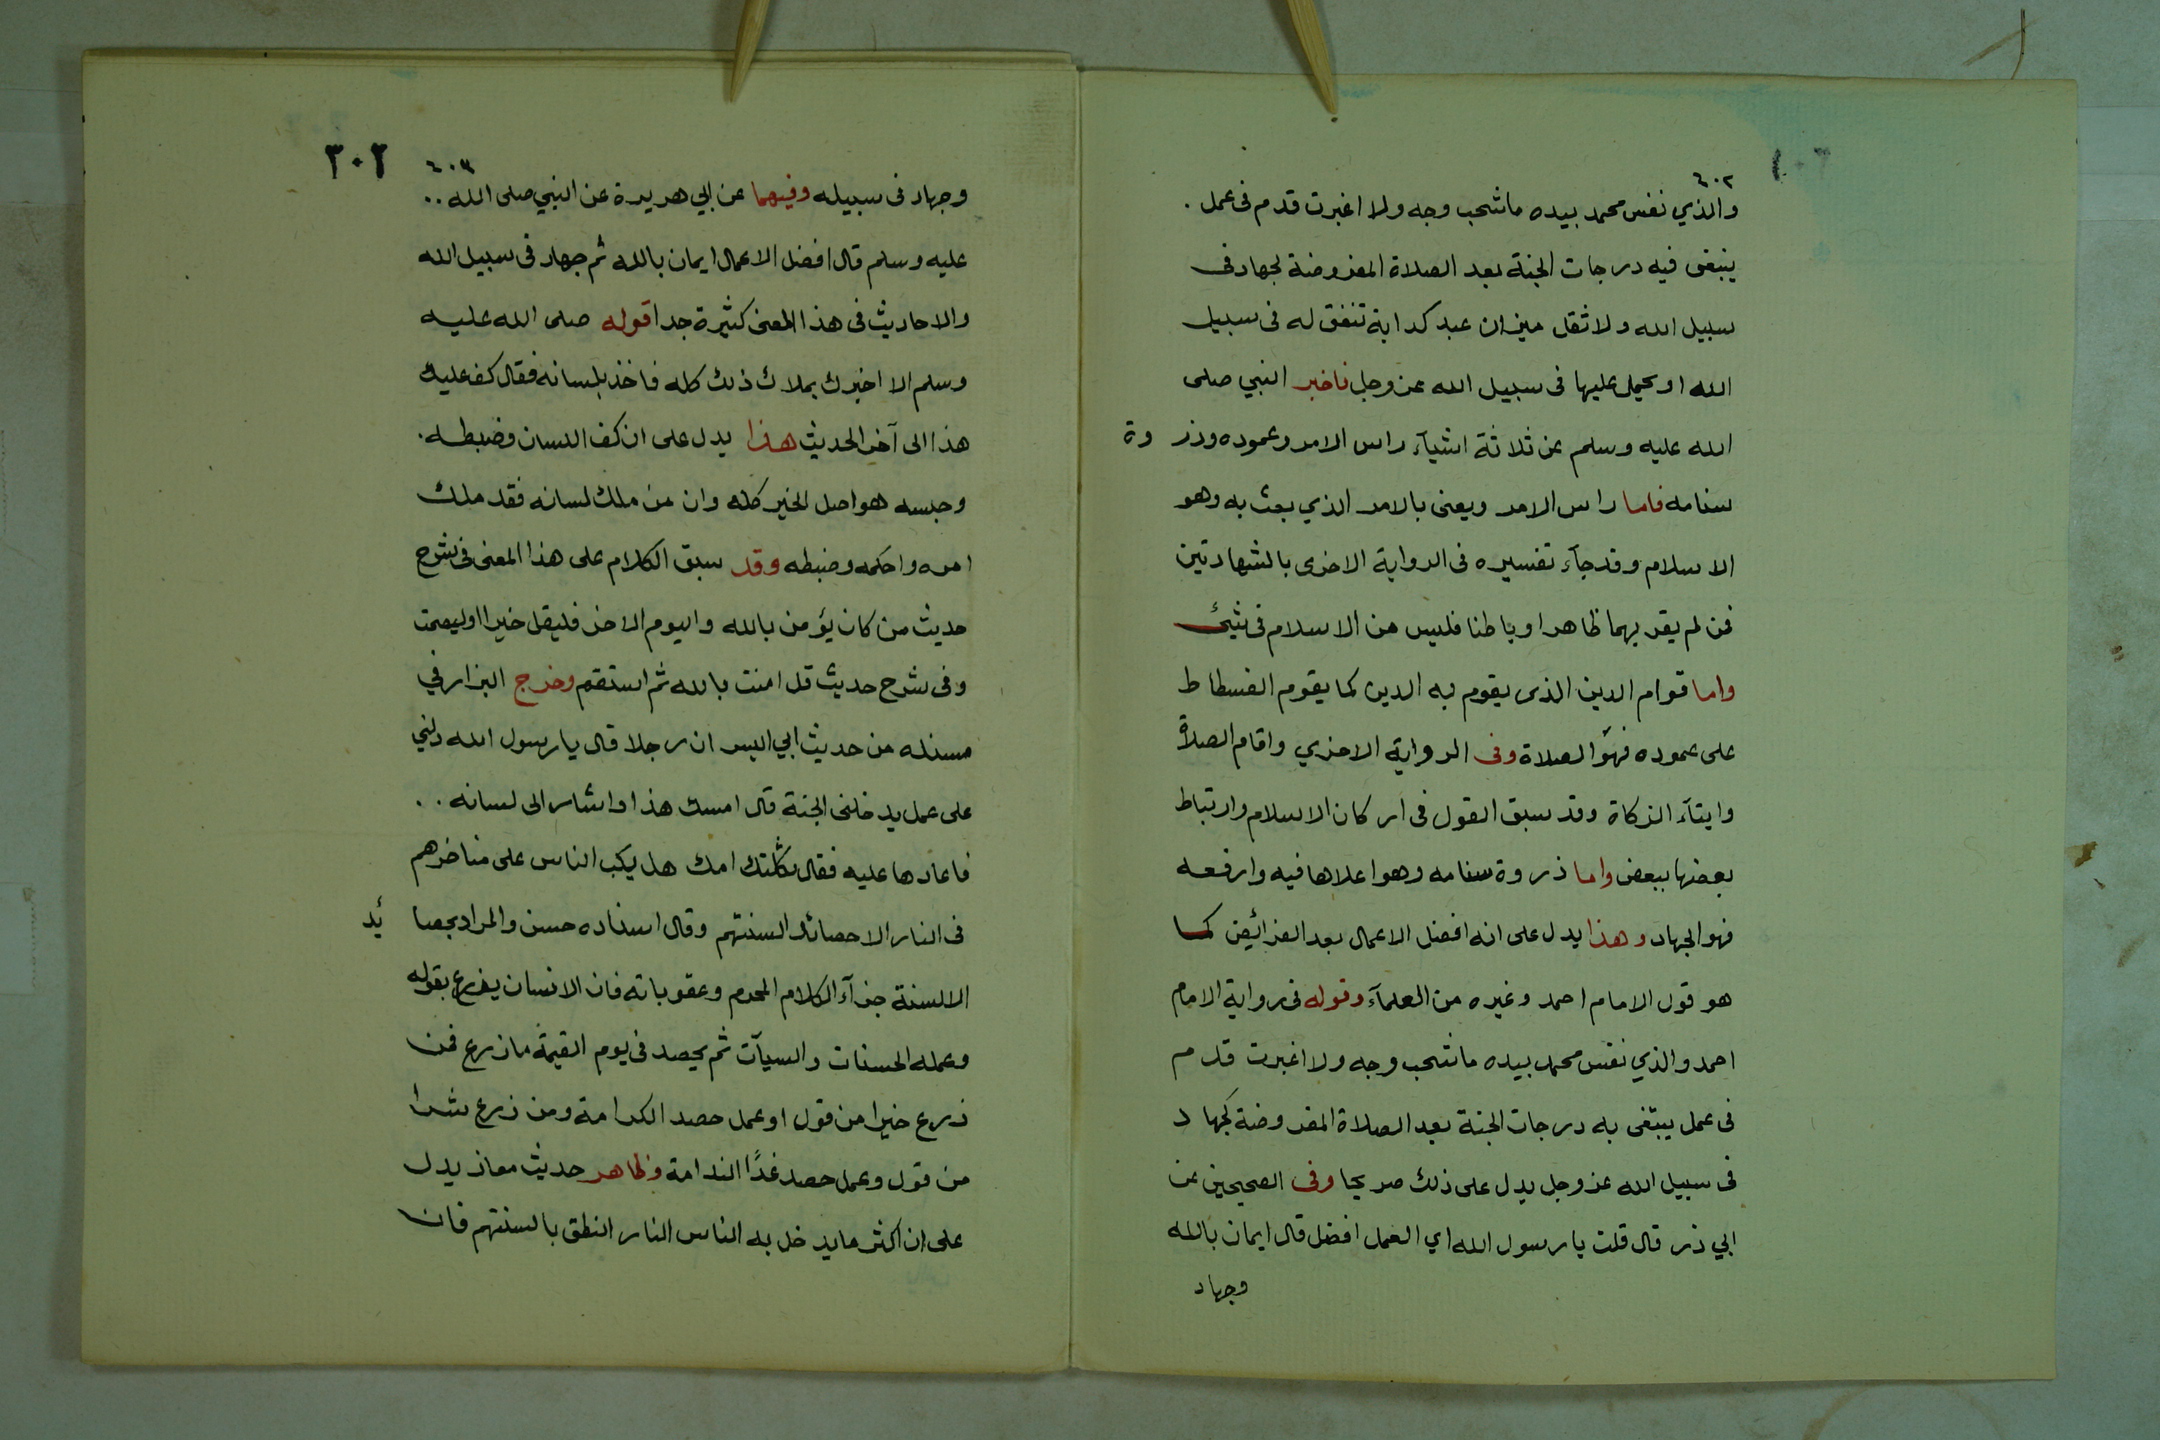 ٦٠٢
والذي نفس محمد بيده ماشحب وجه ولا اغبرت قدم فى عمل .
يبتغى فيه درجات الجنة بعد الصلاة المفروضة لجهاد فى
سبيل الله ولا ثقل ميزان عبد كدابة تنفق له فى سبيل
الله او يحمل عليها فى سبيل الله عز وجل فاخبر النبي صلى
الله عليه وسلم عن ثلاثة اشيآء راس الامر وعموده وذر وة
سنامه فاما راس الامر ويعنى بالامر الذي بعث به وهو
الاسلام وقد جآء تفسيره فى الرواية الاخرى بالشهادتين
فمن لم يقر بهما ظاهرا وباطنا فليس من الاسلام فى شيئ
واما قوام الدين الذى يقوم به الدين كما يقوم الفسطاط
على عموده فهو الصلاة وفى الرواية الاخري واقام الصلاة
وايتآء الزكاة وقد سبق القول فى اركان الاسلام وارتباط
بعضها ببعض واما ذروة سنامه وهو اعلاها فيه وارفعه
فهو الجهاد وهذا يدل على انه افضل الاعمال بعد الفرائيض كما
هو قول الامام احمد وغيره من العلمآء وقوله فى رواية الامام
احمد والذي نفس محمد بيده ماشحب وجه ولا اغبرت قدم
فى عمل يبتغى به درجات الجنة بعد الصلاة المفروضة كجهاد
فى سبيل الله عز وجل يدل على ذلك صريحا وفى الصحيحين عن
ابي ذر قال قلت يا رسول الله اي العمل افضل قال ايمان بالله
وجهاد
٣٠٢
٦٠٣
وجهاد فى سبيله وفيهما عن ابي هريرة عن النبي صلى الله ..
عليه وسلم قال افضل الاعمال ايمان بالله ثم جهاد فى سبيل الله
والاحاديث فى هذا المعنى كثيرة جدا قوله صلى الله عليه
وسلم الا اخبرك بملاك ذلك كله فاخذ بلسانه فقال كف عليك
هذا الى آخر الحديث هذا يدل على ان كف اللسان وضبطه .
وحبسه هو اصل الخير كله وان من ملك لسانه فقد ملك
امره واحكمه وضبطه وقد سبق الكلام على هذا المعنى فى شرح
حديث من كان يؤمن بالله واليوم الاخر فليقل خيرا اوليصمت
وفى شرح حديث قل امنت بالله ثم استقم وخرج البزار في
مسنده من حديث ابي اليسر ان رجلا قال يا رسول الله دلني
على عمل يدخلنى الجنة قال امسك هذا واشار الى لسانه . .
فاعادها عليه فقال ثكلتك امك هل يكب الناس على مناخرهم
فى النار الا حصائد السنتهم وقال اسناده حسن والمراد بحصا ئد
الالسنة جزآء الكلام المحرم وعقوباته فان الانسان يزرع بقوله
وعمله الحسنات والسيآت ثم يحصد فى يوم القيمة ما زرع فمن
زرع خيرا من قول او عمل حصد الكرامة ومن زرع شرا
من قول وعمل حصد غدًا الندامة وظاهر حديث معاذ يدل
على ان اكثر ما يدخل به الناس النار النطق بالسنتهم فان